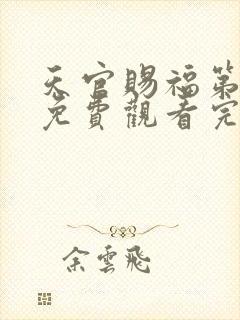 天官賜福第
免費觀看完
余雲飛